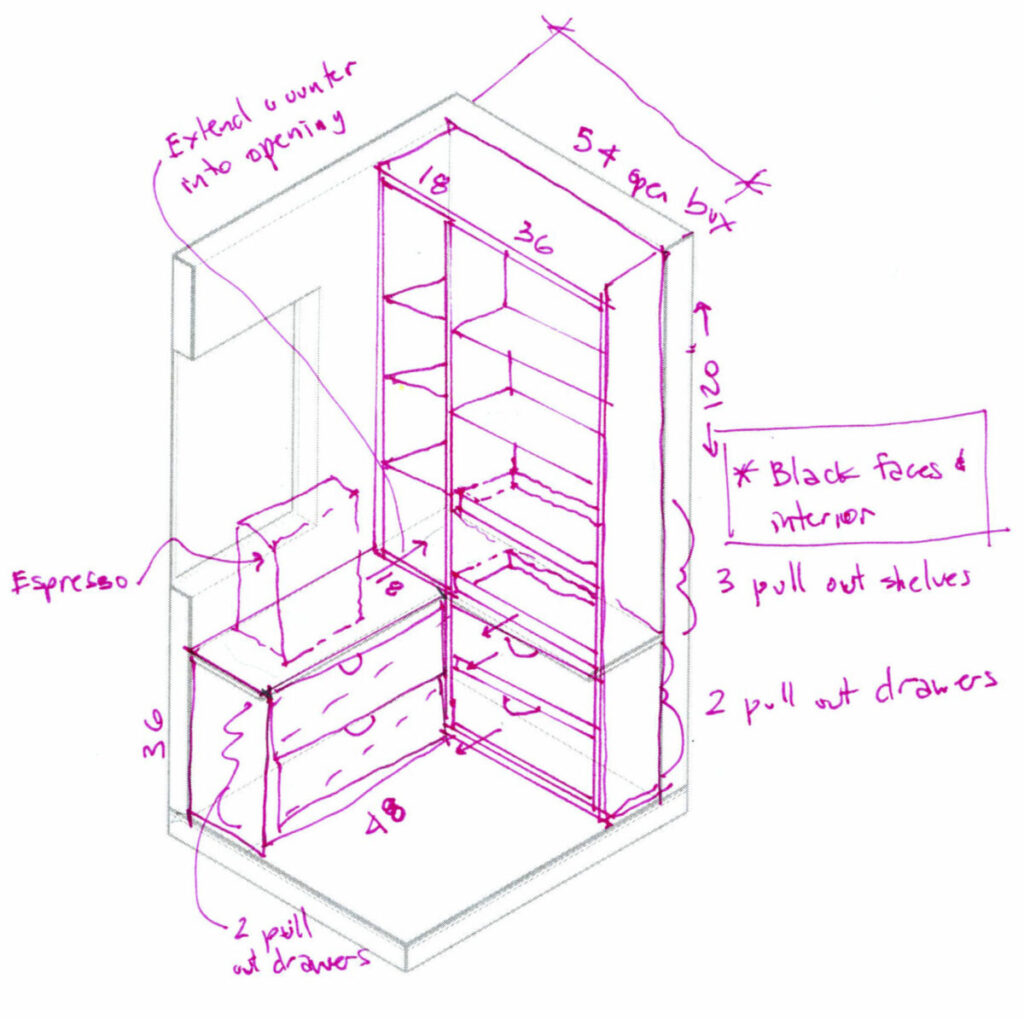 Extend counter
into opening
54 open box
18
36
120"
* Black faces &
interior
Espresso
18
3 pull out shelves
2 pull out drawers
36
48
2 pull
out drawers